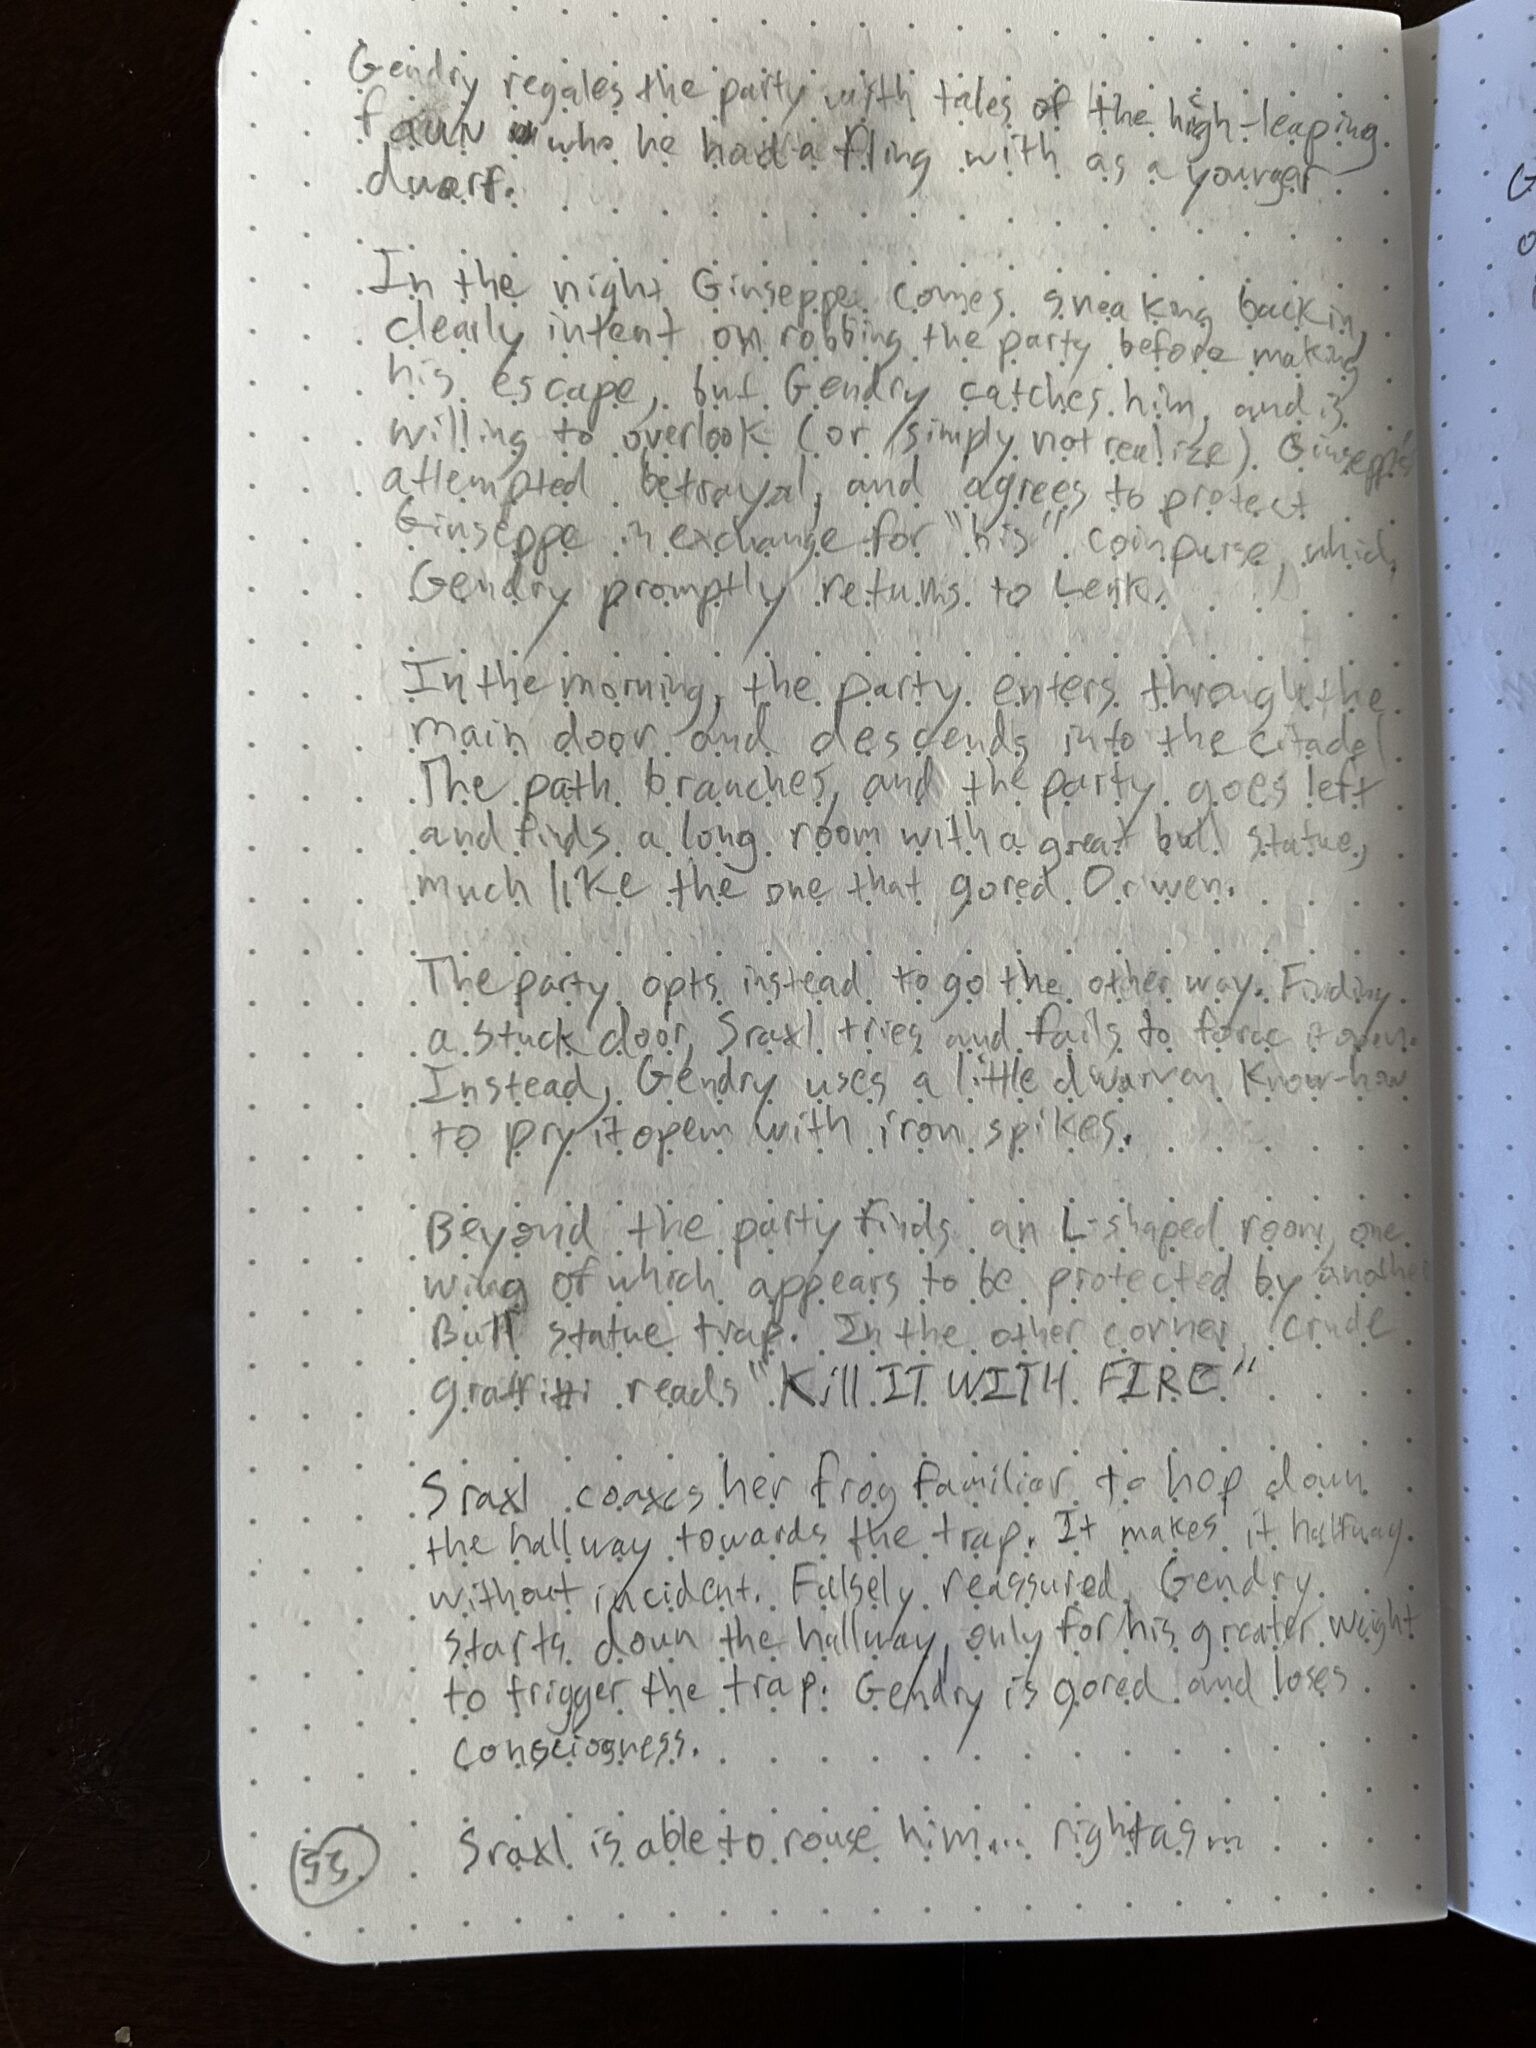 Gendry regales the party with tales of the high-leaping
faun who he had a fling with as a younger
dwarf.
In the night Giuseppe comes sneaking back in,
clearly intent on robbing the party before making
his escape, but Gendry catches him, and is
willing to overlook (or simply not realize) Giuseppe's
attempted betrayal, and agrees to protect
Giuseppe in exchange for "his" coinpurse, which
Gendry promptly returns to
In the morning, the party enters through the
main door and descends into the citadel
The path branches, and the party goes left
and finds a long room with a great bull statue,
much like the one that gored Orwen.
The party opts instead to go the other way. Finding
a stuck door, Sraxl tries and fails to force it open.
Instead, Gendry uses a little dwarven know-how
to pry it open with iron spikes.
Beyond the party finds an L-shaped room, one
wing of which appears to be protected by another
Bull statue trap. In the other corner, crude
graffitti reads "Kill IT WITH FIRE"
Sraxl coaxes her frog familiar to hop down
the hallway towards the trap. It makes it halfway
without incident. Falsely reassured, Gendry
starts down the hallway, only for his greater weight
to trigger the trap. Gendry is gored and loses
consciogness.
Sraxl is able to rouse him... right as...
G
o